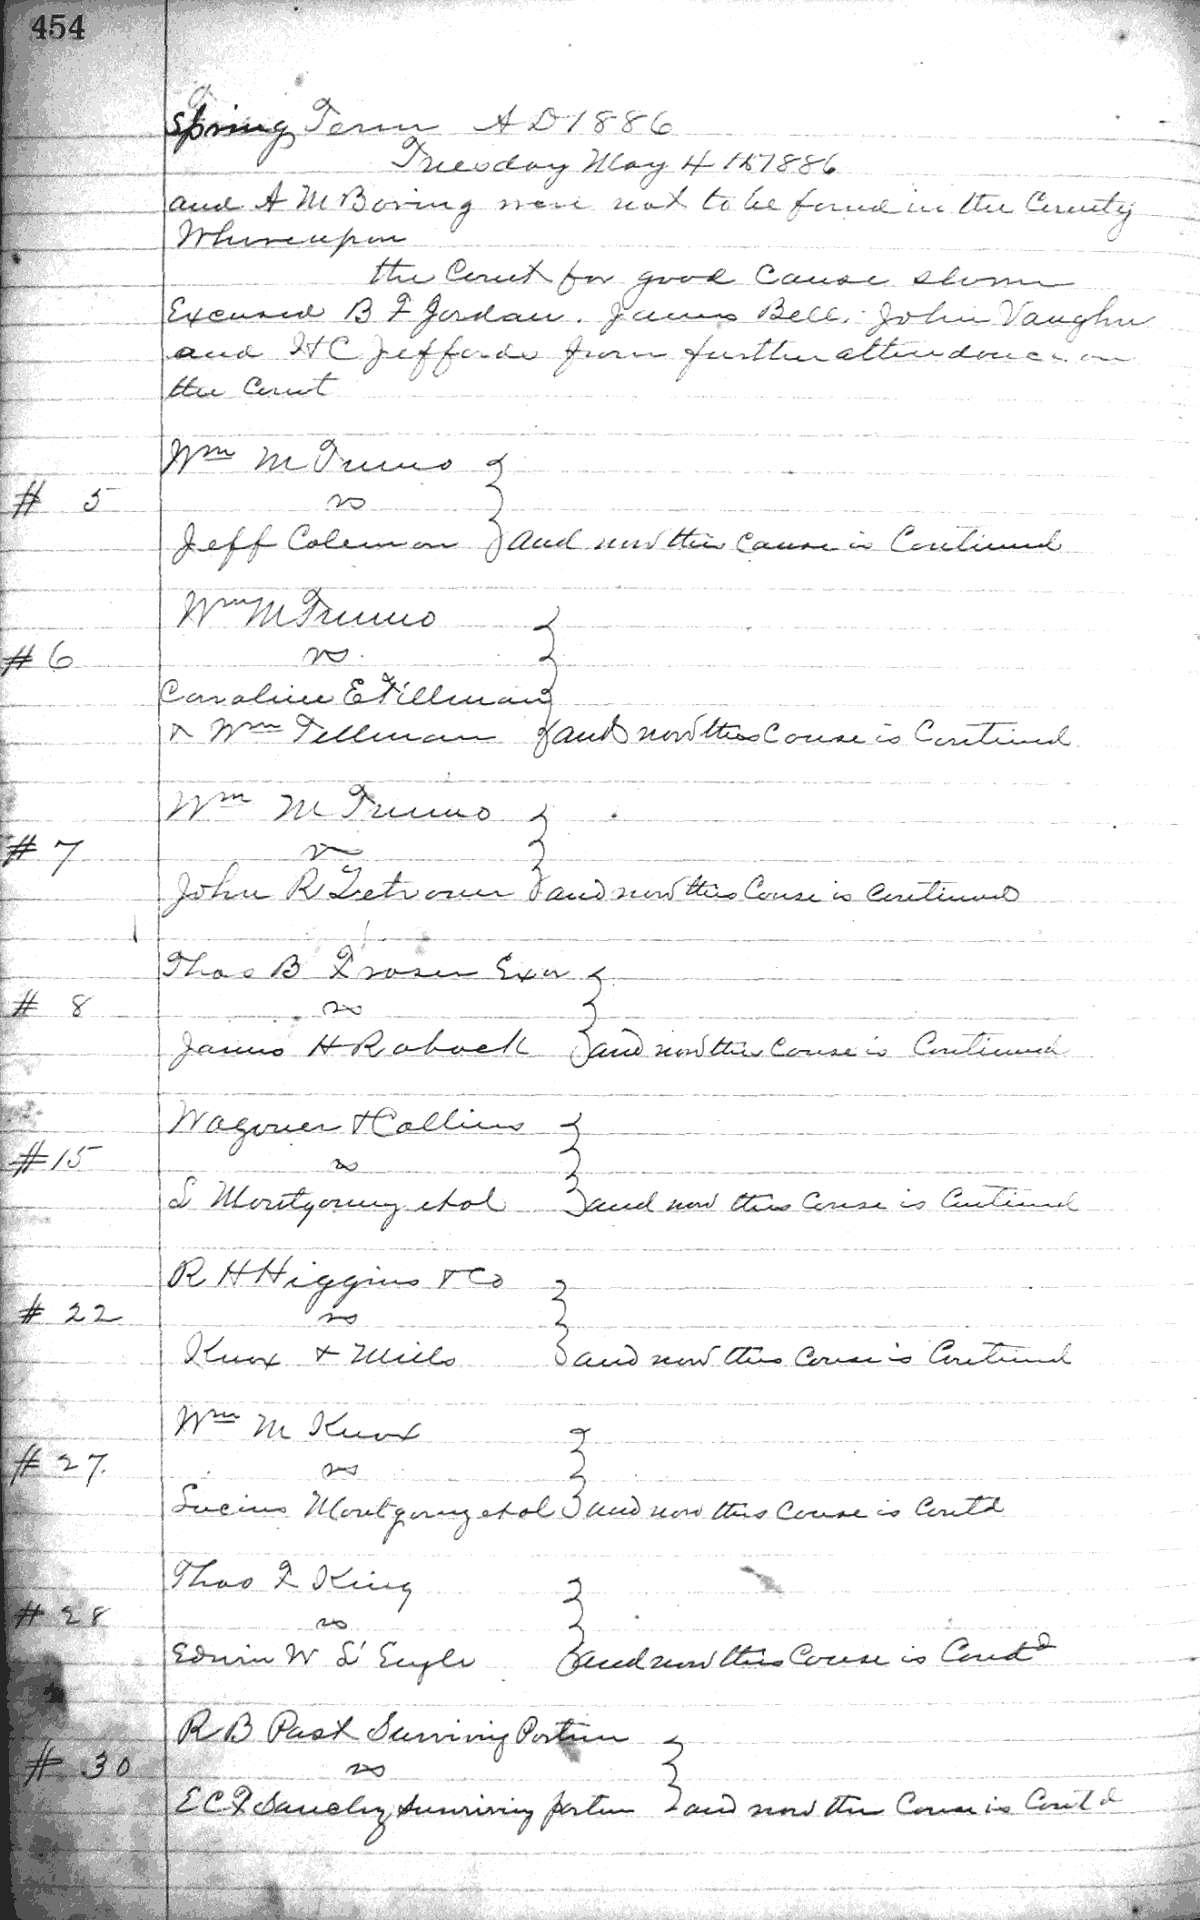 454
Spring Term A D 1886
Tuesday May 4th 1886
and A M Boring were not to be found in the County
Whereupon
the Court for good cause shown
Excused B F Jordan. James Bell. John Vaughn
and H C Jeffords from further attendance on
the Court
Wm M
# 5
vs
Jeff Coleman and now this cause is Continued
Wm M
# 6
vs
Caroline E Tillman
& Wm Tillman and now this Cause is Continued
Wm M
# 7
vs
John R and now this Cause is Continued
Thos B Fraser Exor
# 8
vs
James H Roback and now this Cause is Continued
Wagoner & Collins
# 15
vs
L Montgomery et al and now this Cause is Continued
R H Higgins & Co
# 22
vs
Knox & Mills and now this Cause is Continued
Wm M Knox
# 27.
vs
Lucius Montgomery et al and now this Cause is Contd
Thos F King
# 28
vs
Edwin W L'Engle and now this Cause is Contd
R B Post Surviving Partner
# 30
vs
E C F Sanchez surviving partner and now this Cause is Contd